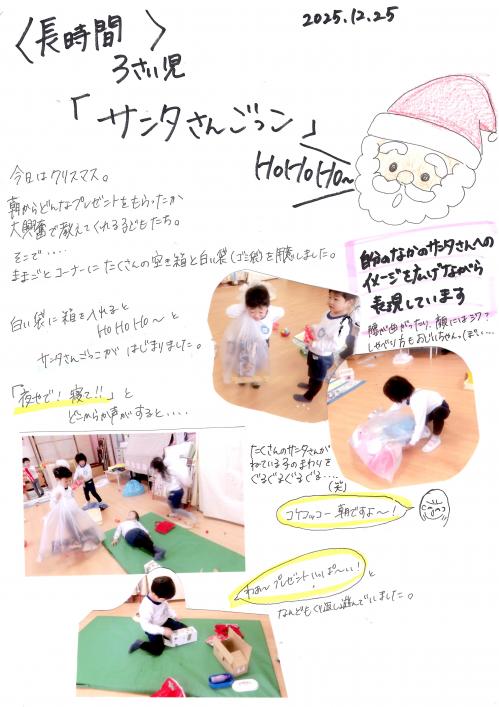 2025.12.25
〈長時間〉
3さい児
「サンタさんごっこ」
HoHoHo~
今日はクリスマス。
朝からどんなプレゼントをもらったか
大興奮で教えてくれる子どもたち。
そこで・・・・
ままごとコーナーにたくさんの空き箱と白い袋(ゴミ袋)を用意しました。
白い袋に箱を入れると
HO HO HO〜と
サンタさんごっこがはじまりました。
自分のなかのサンタさんへの
イメージを広げながら
表現しています
腰が曲がったり、顔にはシワ?
しゃべり方もおじいちゃんっぽい・・・
「夜やで!寝て!!」と
どこからか声がすると・・・・
たくさんのサンタさんが
ねている子のまわりを
ぐるぐるぐるぐる・・・・
(笑)
コケコッコー 朝ですよ〜!
わあ〜プレゼントいっぱ〜い!
と
なんどもくり返し遊んでいました。